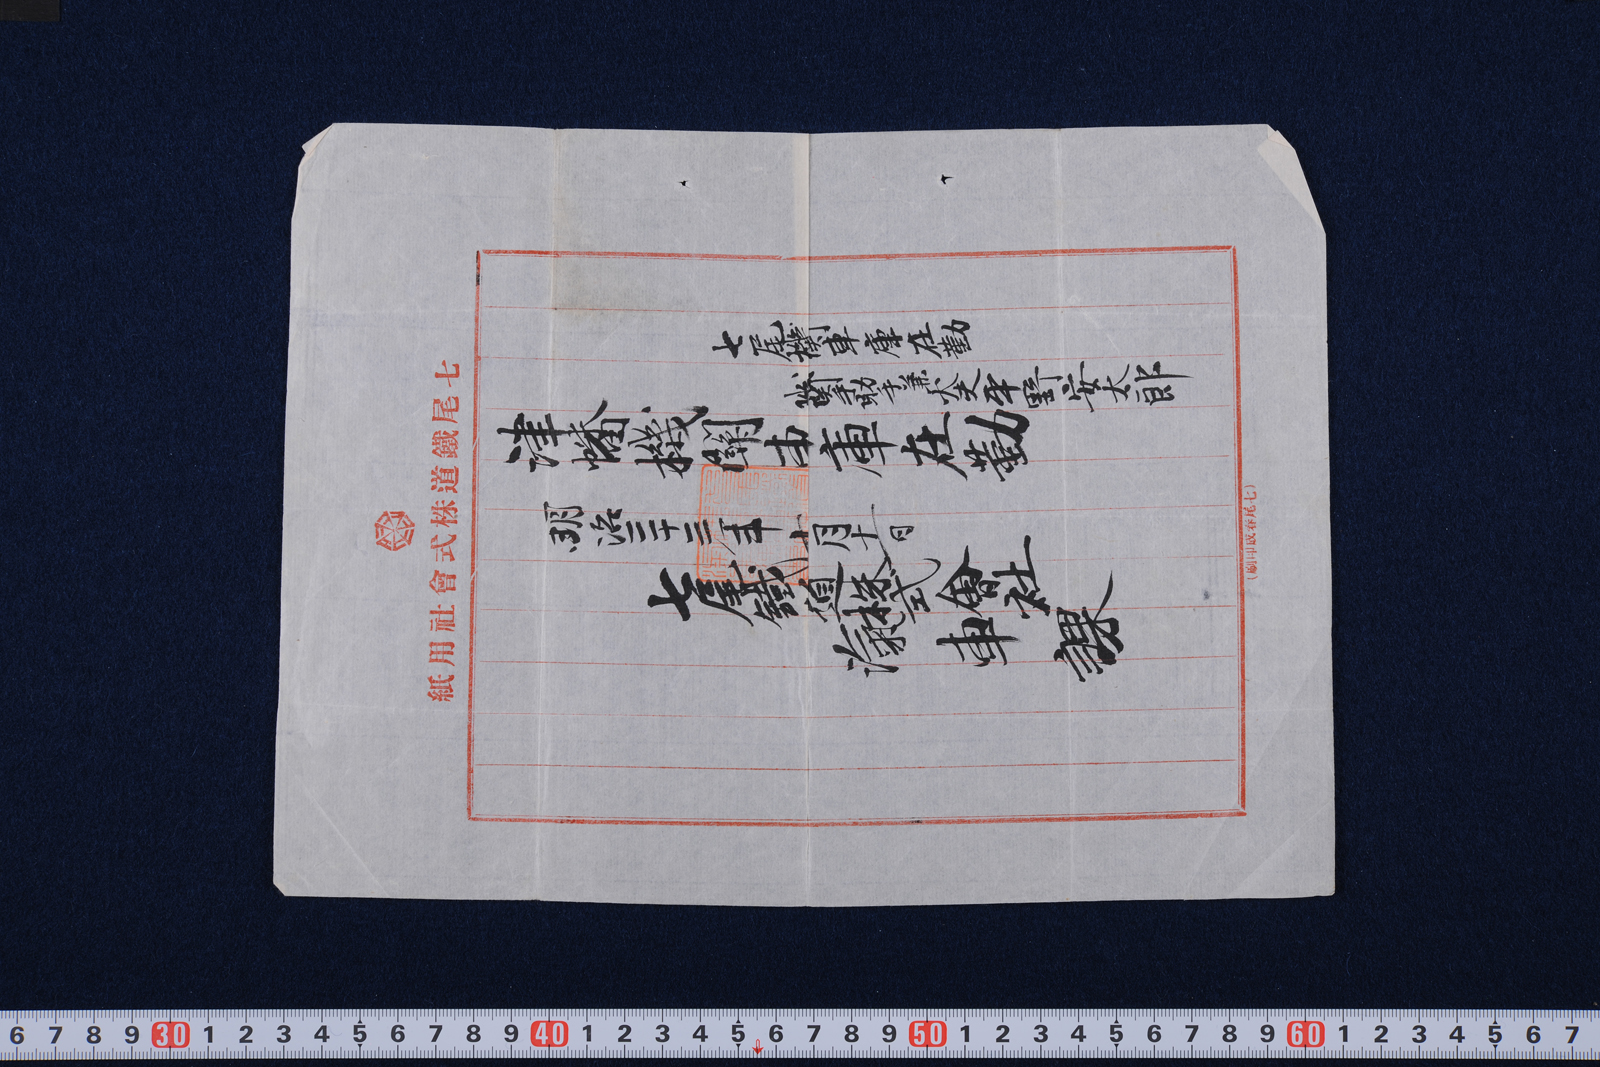 七尾機關車庫在勤
機關手助手兼火夫平野安太郎
津幡機關車庫在勤
明治三十三年十月十一日
七尾鐵道株式會社
汽車課
七尾鐵道株式會社用紙
(七尾春成印刷)
6 7 8 9 30 1 2 3 4 5 6 7 8 9 40 1 2 3 4 5 6 7 8 9 50 1 2 3 4 5 6 7 8 9 60 1 2 3 4 5 6 7